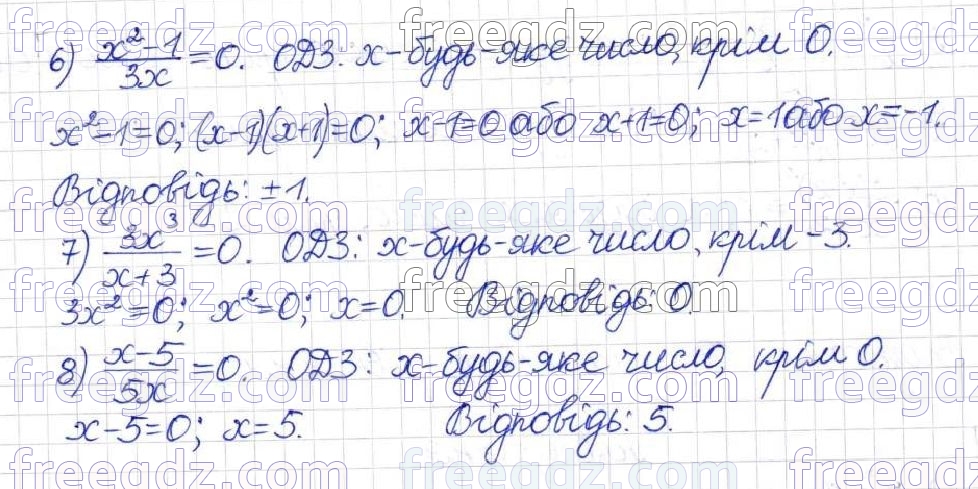 6) x²-1/3x = 0. ОДЗ: x-будь-яке число, крім 0.
x²-1=0; (x-1)(x+1)=0; x-1=0 або x+1=0; x=1 або x=-1.
Відповідь: ±1.
7) 3x³/x+3 = 0. ОДЗ: x-будь-яке число, крім -3.
3x²=0; x²=0; x=0. Відповідь: 0.
8) x-5/5x = 0. ОДЗ: x-будь-яке число, крім 0.
x-5=0; x=5. Відповідь: 5.
freegdz.com